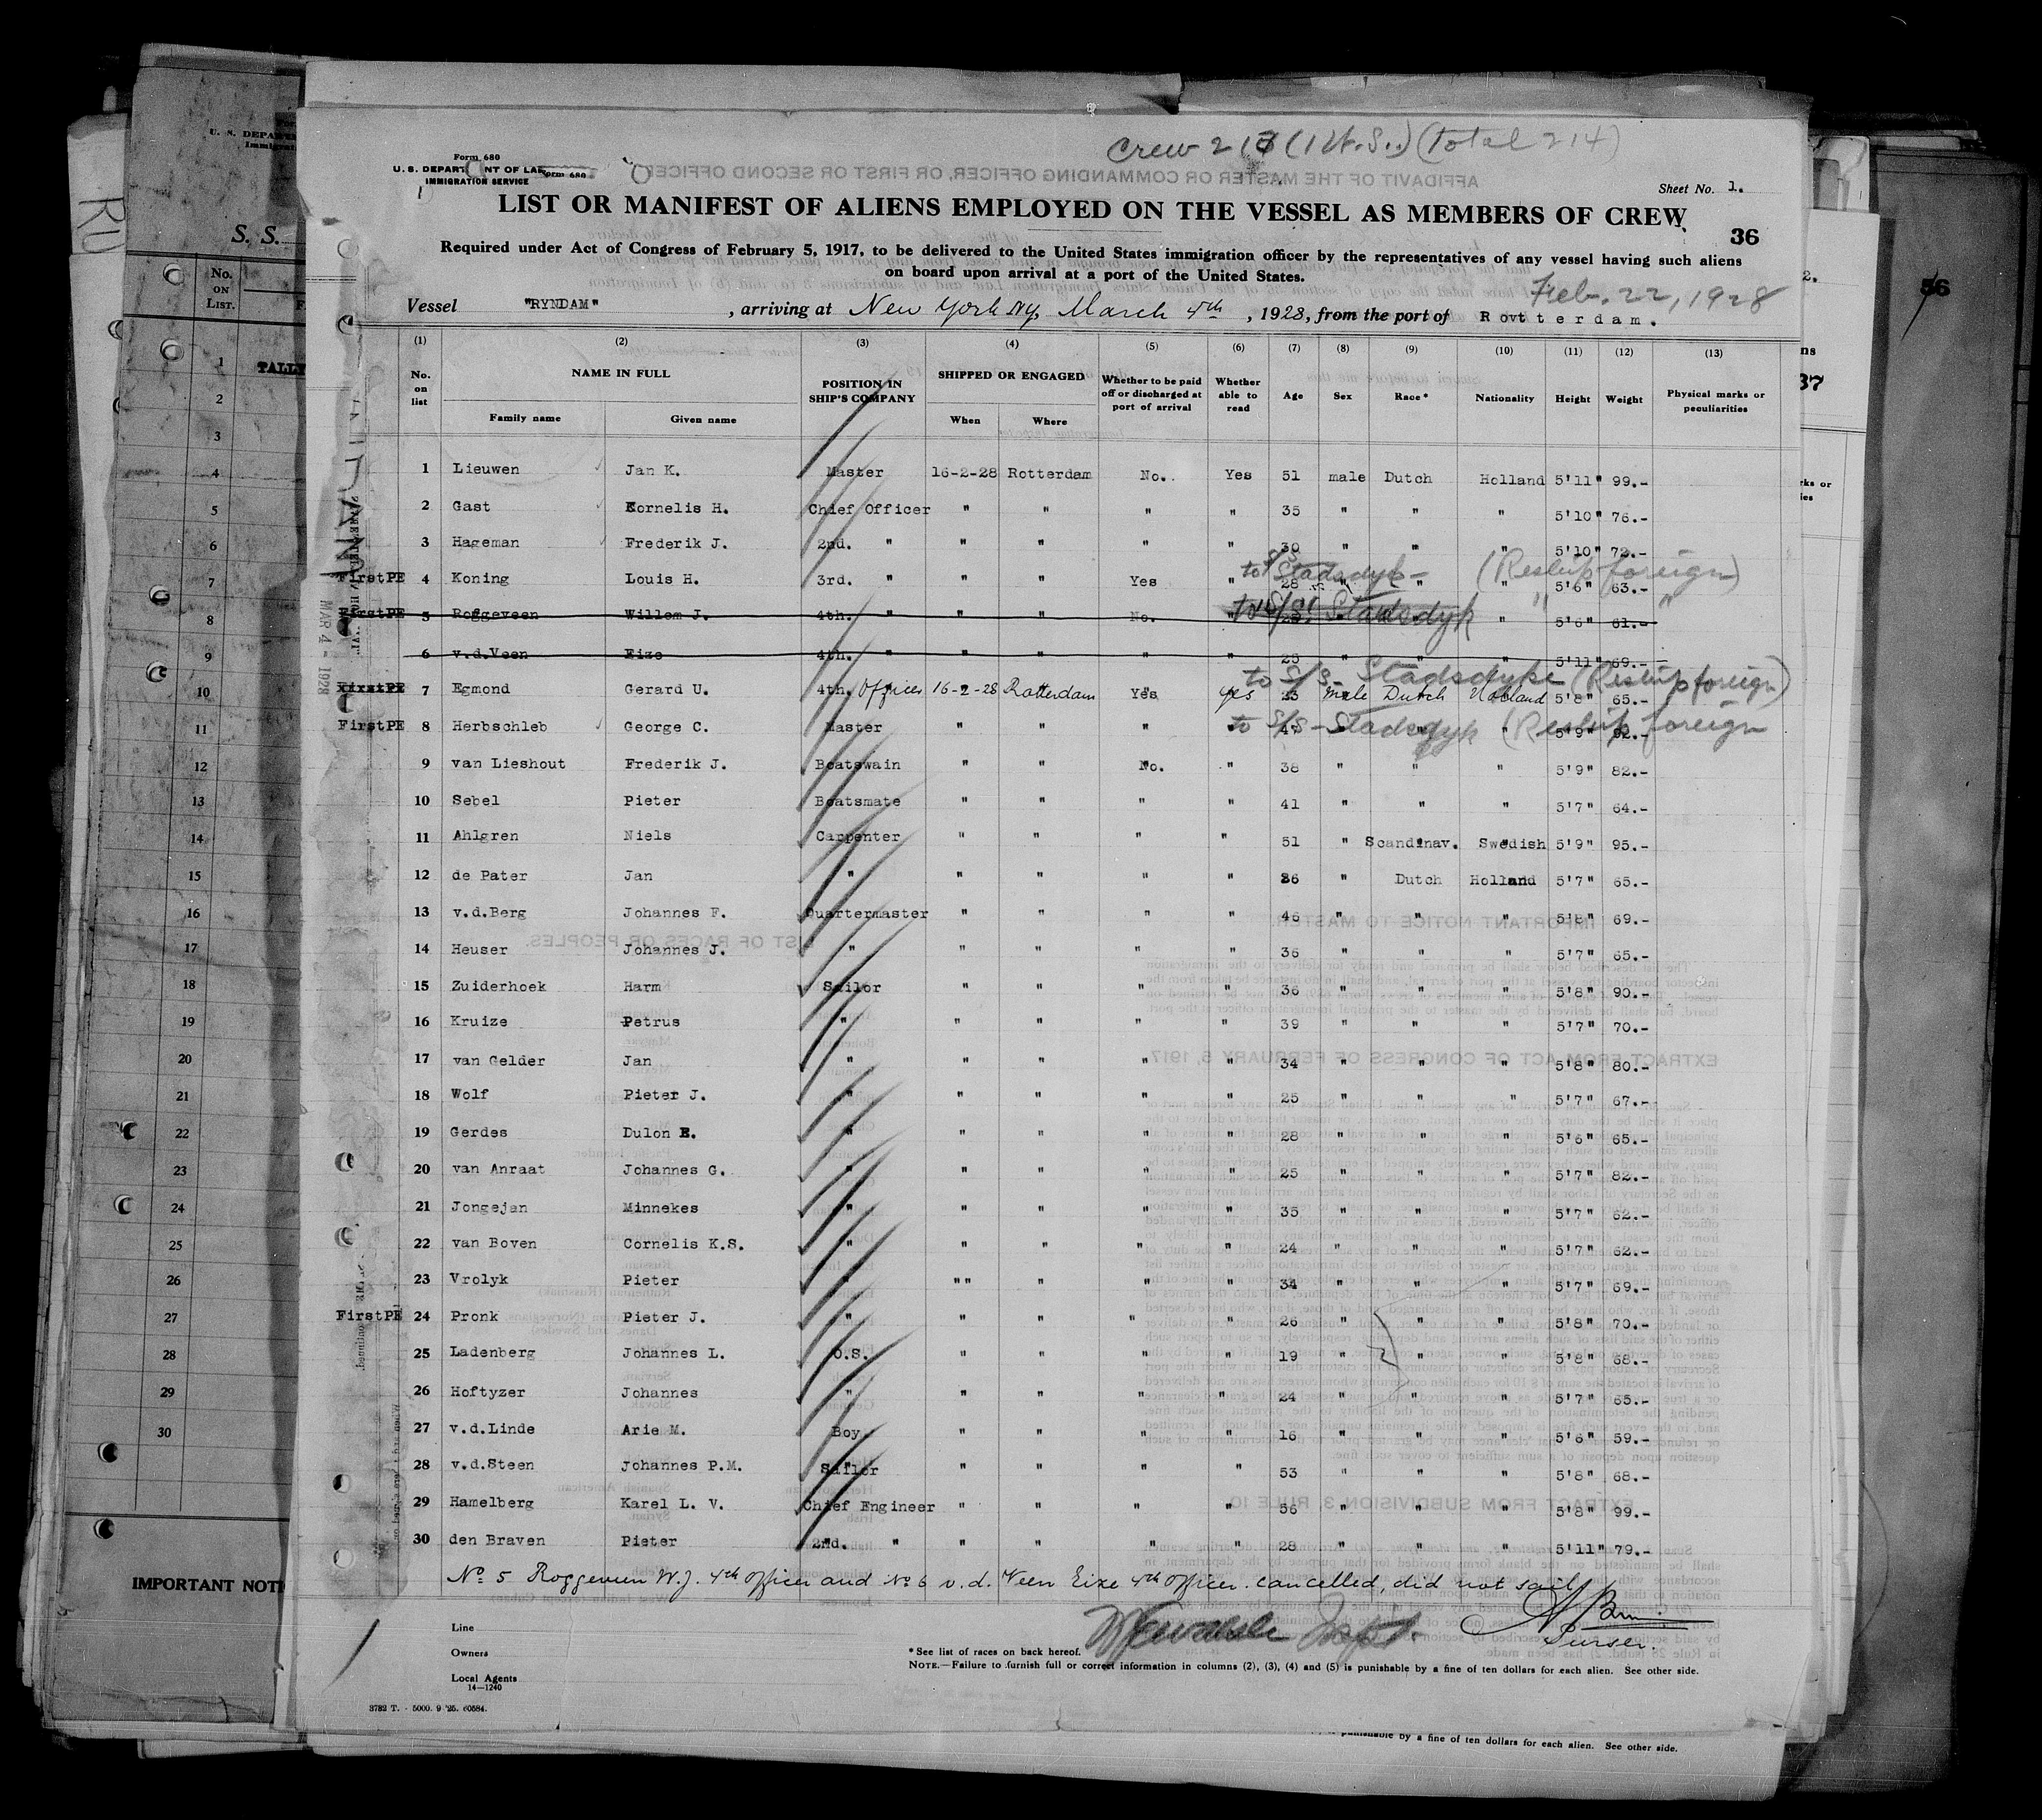 Crew 213 (1 W.S.) (total 214)
Form 680
U. S. DEPARTMENT OF LABOR
IMMIGRATION SERVICE
Form 680
Sheet No. 1.
LIST OR MANIFEST OF ALIENS EMPLOYED ON THE VESSEL AS MEMBERS OF CREW
36
Required under Act of Congress of February 5, 1917, to be delivered to the United States immigration officer by the representatives of any vessel having such aliens
on board upon arrival at a port of the United States.
Feb. 22, 1928
Vessel "RYNDAM" , arriving at New York NY, March 4th , 1928, from the port of Rotterdam.
(1) (2) (3) (4) (5) (6) (7) (8) (9) (10) (11) (12) (13)
No. on list NAME IN FULL Family name Given name POSITION IN SHIP'S COMPANY SHIPPED OR ENGAGED When Where Whether to be paid off or discharged at port of arrival Whether able to read Age Sex Race* Nationality Height Weight Physical marks or peculiarities
1 Lieuwen Jan K. Master 16-2-28 Rotterdam No. Yes 51 male Dutch Holland 5'11" 99.-
2 Gast Kornelis H. Chief Officer " " " " 35 " " " 5'10" 76.-
3 Hageman Frederik J. 2nd. " " " " " 30 " " " 5'10" 72.-
to S/S Stadsdyk - (Reship foreign)
FirstPE 4 Koning Louis H. 3rd. " " " Yes " 28 " " " 5'6" 63.-
to S/S Stadsdyk " "
FirstPE 5 Roggeveen Willem J. 4th. " " " No. " " " " 5'6" 61.-
6 v.d.Veen Eize 4th. " " " " " 25 " " " 5'11" 69.-
to S/S - Stadsdyk (Reship foreign)
FirstPE 7 Egmond Gerard U. 4th. Officer 16-2-28 Rotterdam Yes yes 23 male Dutch Holland 5'8" 65.-
to S/S - Stadsdyk (Reship foreign
FirstPE 8 Herbschleb George C. Master " " " " 47 " " " 5'9" 92.-
9 van Lieshout Frederik J. Boatswain " " No. " 38 " " " 5'9" 82.-
10 Sebel Pieter Boatsmate " " " " 41 " " " 5'7" 64.-
11 Ahlgren Niels Carpenter " " " " 51 " Scandinav. Swedish 5'9" 95.-
12 de Pater Jan " " " " " 36 " Dutch Holland 5'7" 65.-
13 v.d.Berg Johannes F. Quartermaster " " " " 46 " " " 5'8" 69.-
14 Heuser Johannes J. " " " " " 36 " " " 5'7" 65.-
15 Zuiderhoek Harm Sailor " " " " 36 " " " 5'8" 90.-
16 Kruize Petrus " " " " " 39 " " " 5'7" 70.-
17 van Gelder Jan " " " " " 34 " " " 5'8" 80.-
18 Wolf Pieter J. " " " " " 25 " " " 5'7" 67.-
19 Gerdes Dulon E. " " " " " 28 " " " 5'6" 65.-
20 van Anraat Johannes G. " " " " " 25 " " " 5'7" 82.-
21 Jongejan Minnekes " " " " " 35 " " " 5'7" 62.-
22 van Boven Cornelis K.S. " " " " " 24 " " " 5'7" 62.-
23 Vrolyk Pieter " "" " " " 34 " " " 5'7" 69.-
FirstPE 24 Pronk Pieter J. " " " " " 26 " " " 5'8" 70.-
25 Ladenberg Johannes L. O.S. " " " " 19 " " " 5'8" 68.-
26 Hoftyzer Johannes " " " " " 24 " " " 5'7" 65.-
27 v.d.Linde Arie M. Boy " " " " 16 " " " 5'6" 59.-
28 v.d.Steen Johannes P.M. Sailor " " " " 53 " " " 5'8" 68.-
29 Hamelberg Karel L. V. Chief Engineer " " " " 56 " " " 5'8" 99.-
30 den Braven Pieter 2nd. " " " " " 28 " " " 5'11" 79.-
No 5 Roggeveen W.J. 4th officer and No 6 v.d. Veen Eize 4th officer. cancelled, did not sail
Purser.
Line
Owners
Local Agents
14—1240
* See list of races on back hereof.
NOTE.—Failure to furnish full or correct information in columns (2), (3), (4) and (5) is punishable by a fine of ten dollars for each alien. See other side.
3782 T. - 5000. 9 '25. 60584.
punishable by a fine of ten dollars for each alien. See other side.
MAR 4 - 1928
RU
U. S. DEPAR
S. S.
No. ON LIST.
TALLY
1
2
3
4
5
6
7
8
9
10
11
12
13
14
15
16
17
18
19
20
21
22
23
24
25
26
27
28
29
30
IMPORTANT NOTI
2.
37
56